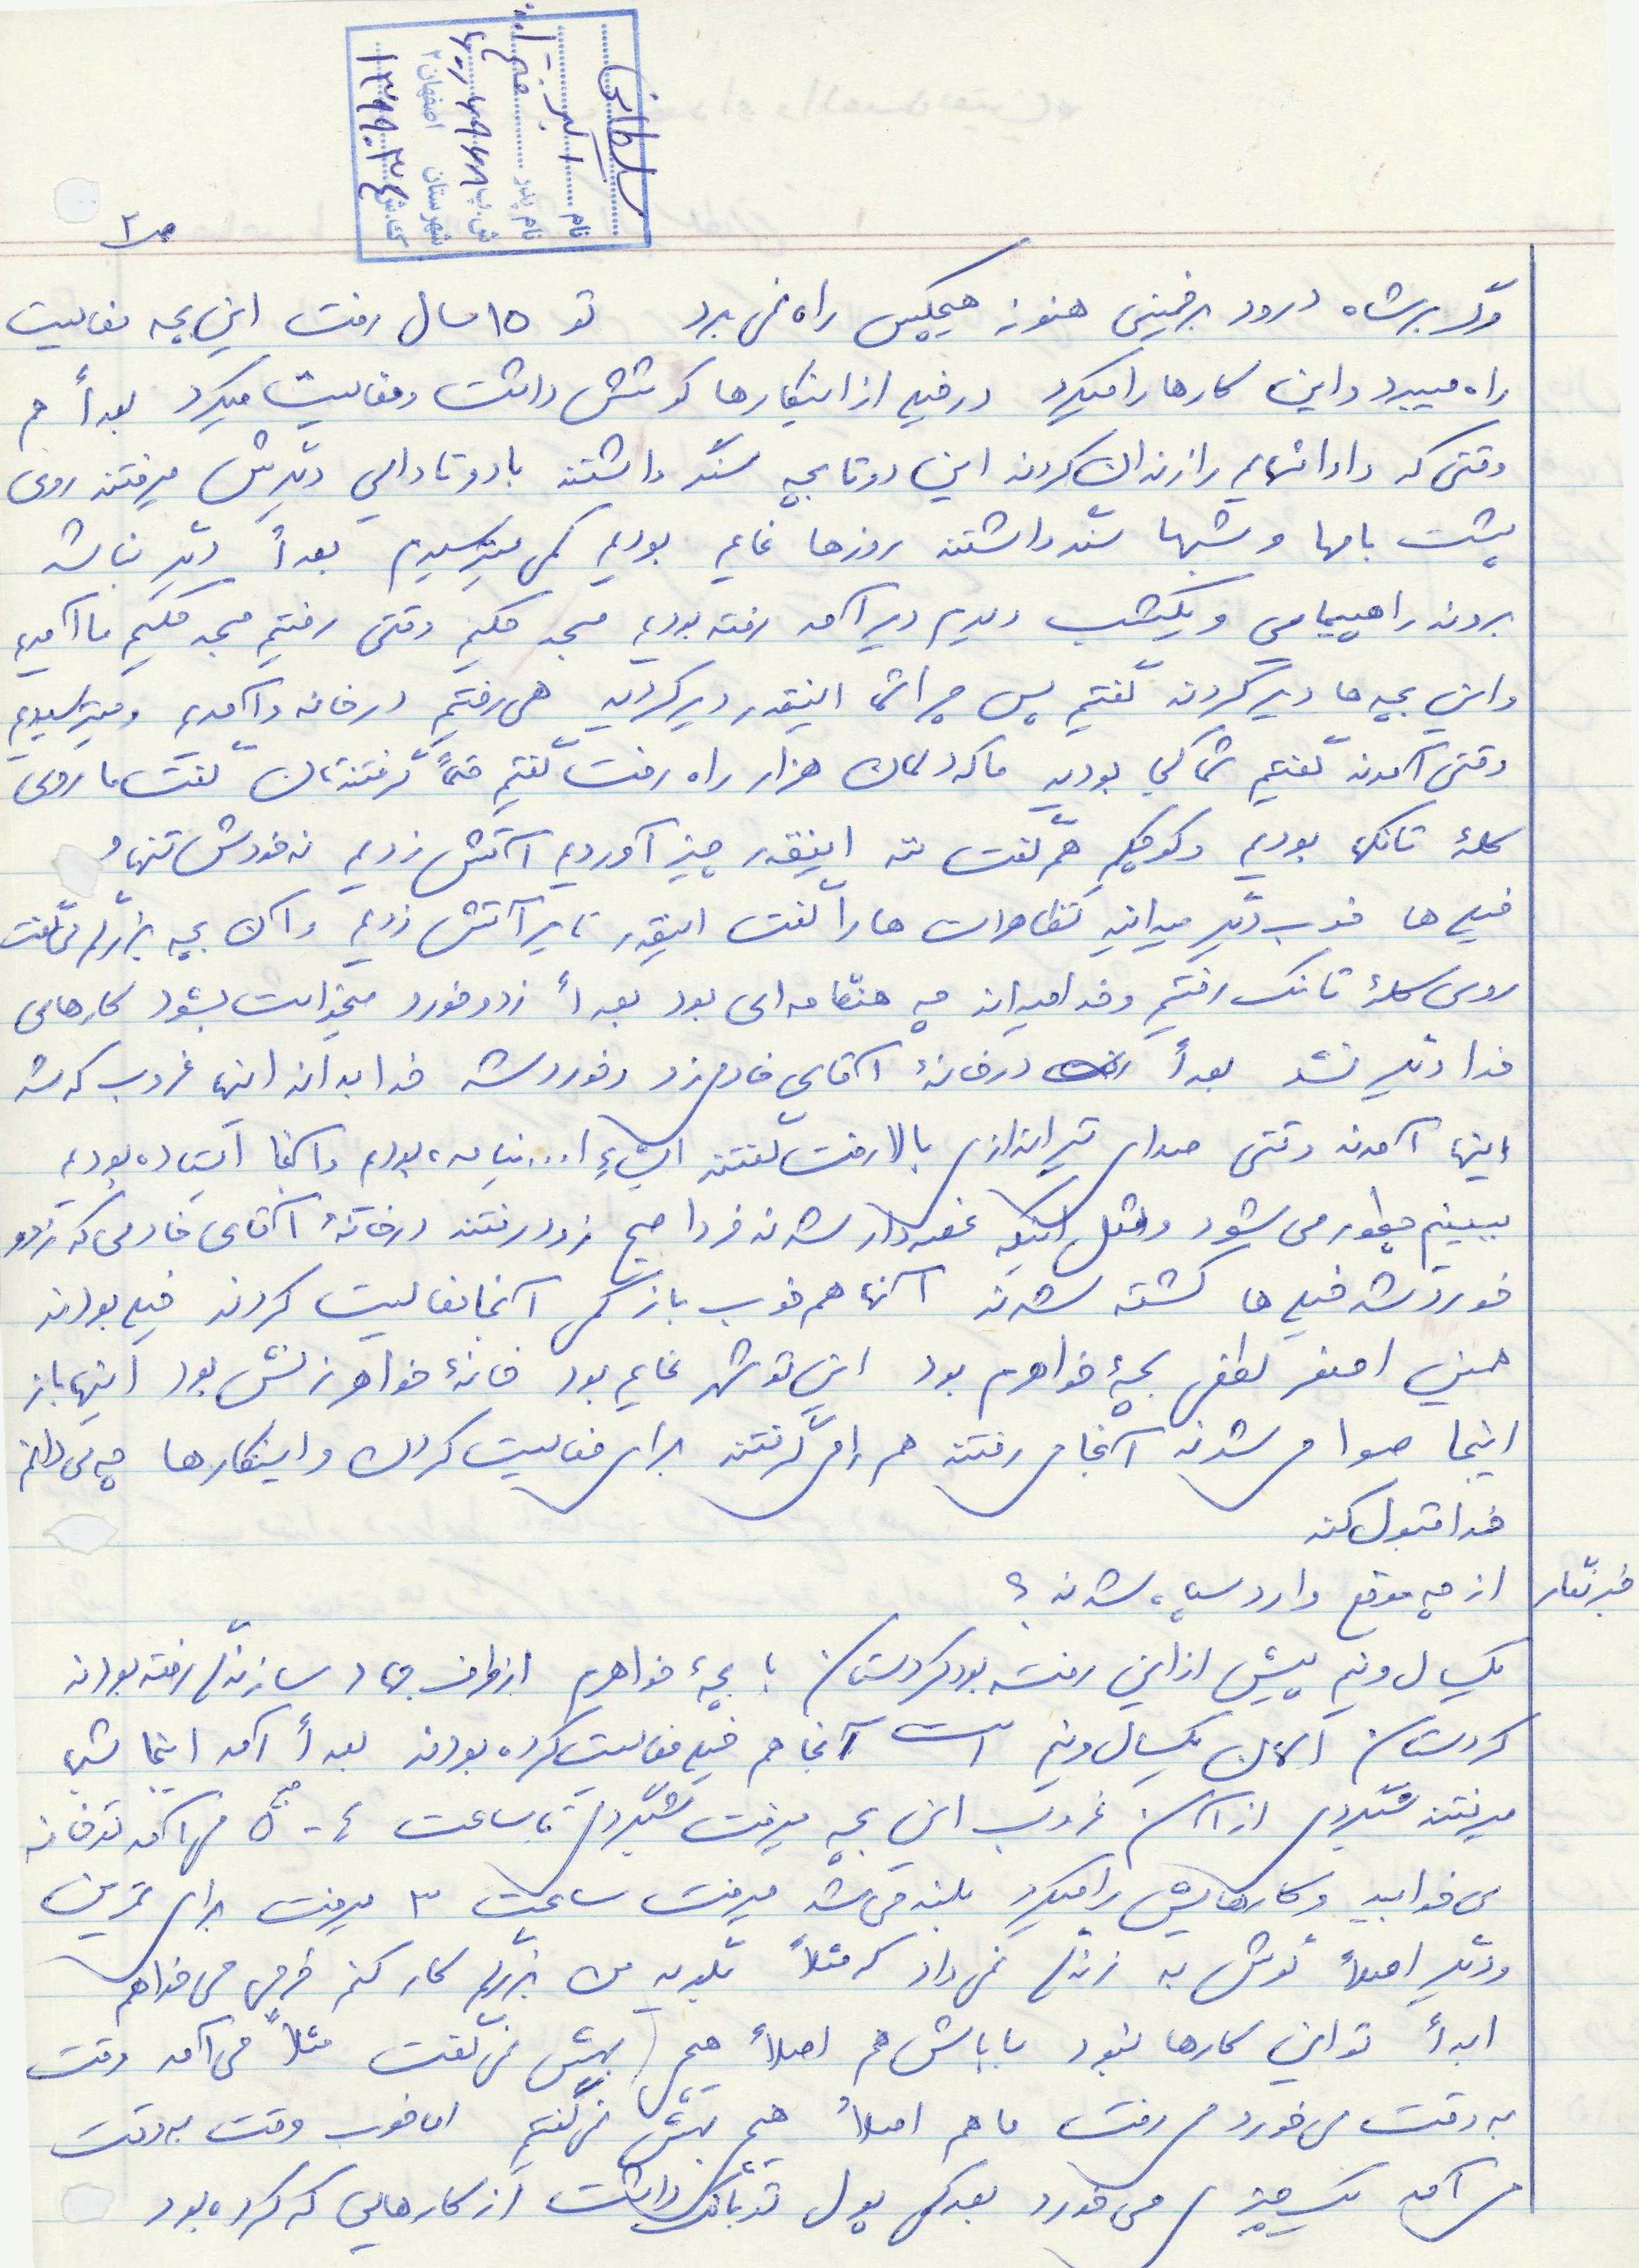 سلطانی
نام اکبر
نام پدر
شهرستان اصفهان ۲
ص ۲
مرگ بر شاه درود بر خمینی هنوز هیچکس راه نمی برد تو ۱۵ سال رفت این بچه فعالیت
راه میبرد و این کارها را میکرد در خیلی از اینکارها کوشش داشت و فعالیت میکرد بعداً هم
وقتی که دادا شهایم را زندان کردند این دوتا بچه سنگر داشتند با دوتا دایی دیگرش میرفتند روی
پشت بامها و شبها سنگر داشتند روزها قایم بودیم کمی میترسیدیم بعداً دیگر بنا شد
بروند راهپیمایی و یکشب دیدیم دیر آمد رفته بودیم مسجد حکیم وقتی رفتیم مسجد حکیم ما آمدیم
و این بچه ها دیر کردند گفتیم پس چرا شما اینقدر دیر کردید هی رفتیم در خانه و آمدیم و میترسیدیم
وقتی آمدند گفتیم شما کجا بودید ما که دلمان هزار راه رفت گفتیم حتماً گرفتندتان گفت ما روی
کلهٔ تانکها بودیم و کوچکم هم گفت ننه اینقدر چیز آوردیم آتش زدیم نه خودش تنها و
خیلی ها خوب دیگر میدانید تظاهرات ها را گفت اینقدر تایر آتش زدیم و آن بچه بزرگم می گفت
روی کلهٔ تانک رفتیم و خدا میداند چه هنگامه ای بود بعداً زد و خورد میخواست بشود کارهای
خدا دیگر نشد بعداً در خانهٔ آقای خادمی زد و خورد شد خدا بداند اینها غروب که شد
اینها آمدند وقتی صدای تیراندازی بالا رفت گفتند ای نیامده بودیم و آنجا ایستاده بودیم
ببینیم چطور می شود و مثل اینکه غصه دار شدند فردا صبح زود رفتند در خانهٔ آقای خادمی که زد و
خورد شد خیلی ها کشته شدند آنها هم خوب باز کمی آنجا فعالیت کردند خیلی بودند
همین اصغر لطفی بچهٔ خواهرم بود این تو شهر قایم بود خانهٔ خواهر زنش بود اینها باز
اینجا صدا می شدند آنجا می رفتند هم را می گرفتند برای فعالیت کردن و اینکارها چه می دانم
خدا قبول کند
خبرنگار از چه موقع وارد سپاه شدند؟
یکسال و نیم پیش از این رفت بود کردستان با بچهٔ خواهرم از طرف جهاد سازندگی رفته بودند
کردستان الان یکسال و نیم است آنجا هم خیلی فعالیت کرده بودند بعداً آمد اینجا شبها
میرفتند شبگردی از آن غروب این بچه میرفت شبگردی تا ساعت ۴ - ۵ می آمد تو خانه
می خوابید و کارهایش را میکرد بلند می شد میرفت ساعت ۳ میرفت برای تمرین
و دیگر اصلاً گوش به زندگی نمی داد که مثلاً بگوید من بزرگم کار کنم خرجی می خواهم
ابداً تو این کارها نبود باباش هم اصلاً هیچی بهش نمی گفت مثلاً می آمد وقت
به وقت می خورد می رفت ما هم اصلاً هیچی بهش نمی گفتیم اما خوب وقت به وقت
می آمد یک چیزی می خورد بعد کمی پول تو بانک داشت از کارهایی که کرده بود